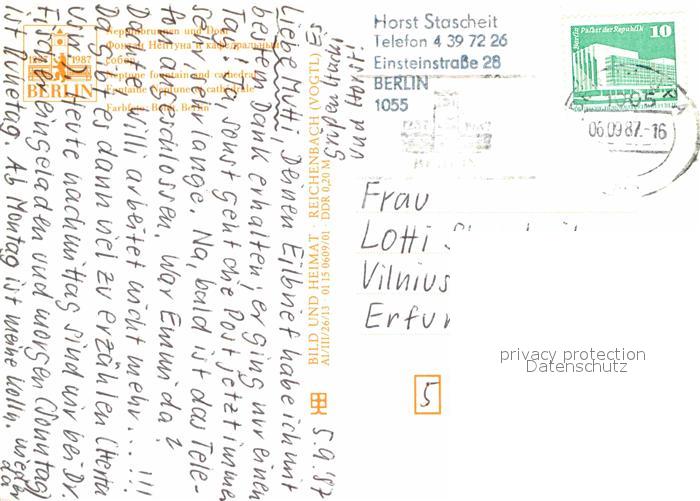 Neptunbrunnen und Dom
Фонтан Нептуна и кафедральный
собор
Neptune fountain and cathedral
Fontaine Neptune et cathédrale
Farbfoto: Berlin
1987
BERLIN
5.9.'87
Liebe Mutti, Deinen Eilbrief habe ich mit
bestem Dank erhalten; er ging nur einen
Tag, ja, sonst geht die Post jetzt immer
sehr, sehr lange. Na, bald ist das Tele-
fon angeschlossen. War Emmi da?
Dank, Willi arbeitet nicht mehr... !!!
Da gibt es dann viel zu erzählen (Herta
und D.) Heute nachmittag sind wir bei Dr.
Fischer eingeladen und morgen (Sonntag)
ist Ruhetag. Ab Montag ist meine Kolln. wieder
da
und Horsti
BILD UND HEIMAT · REICHENBACH (VOGTL)
A1/III/26/13 · 01 15 0609/01 · DDR 0,20 M
Horst Stascheit
Telefon 4 39 72 26
Einsteinstraße 28
BERLIN
1055
Berlin, Palast der Republik
10
1085
06.09.87.-16
Frau
Lotti
Vilnius
Erfur
5
privacy protection
Datenschutz